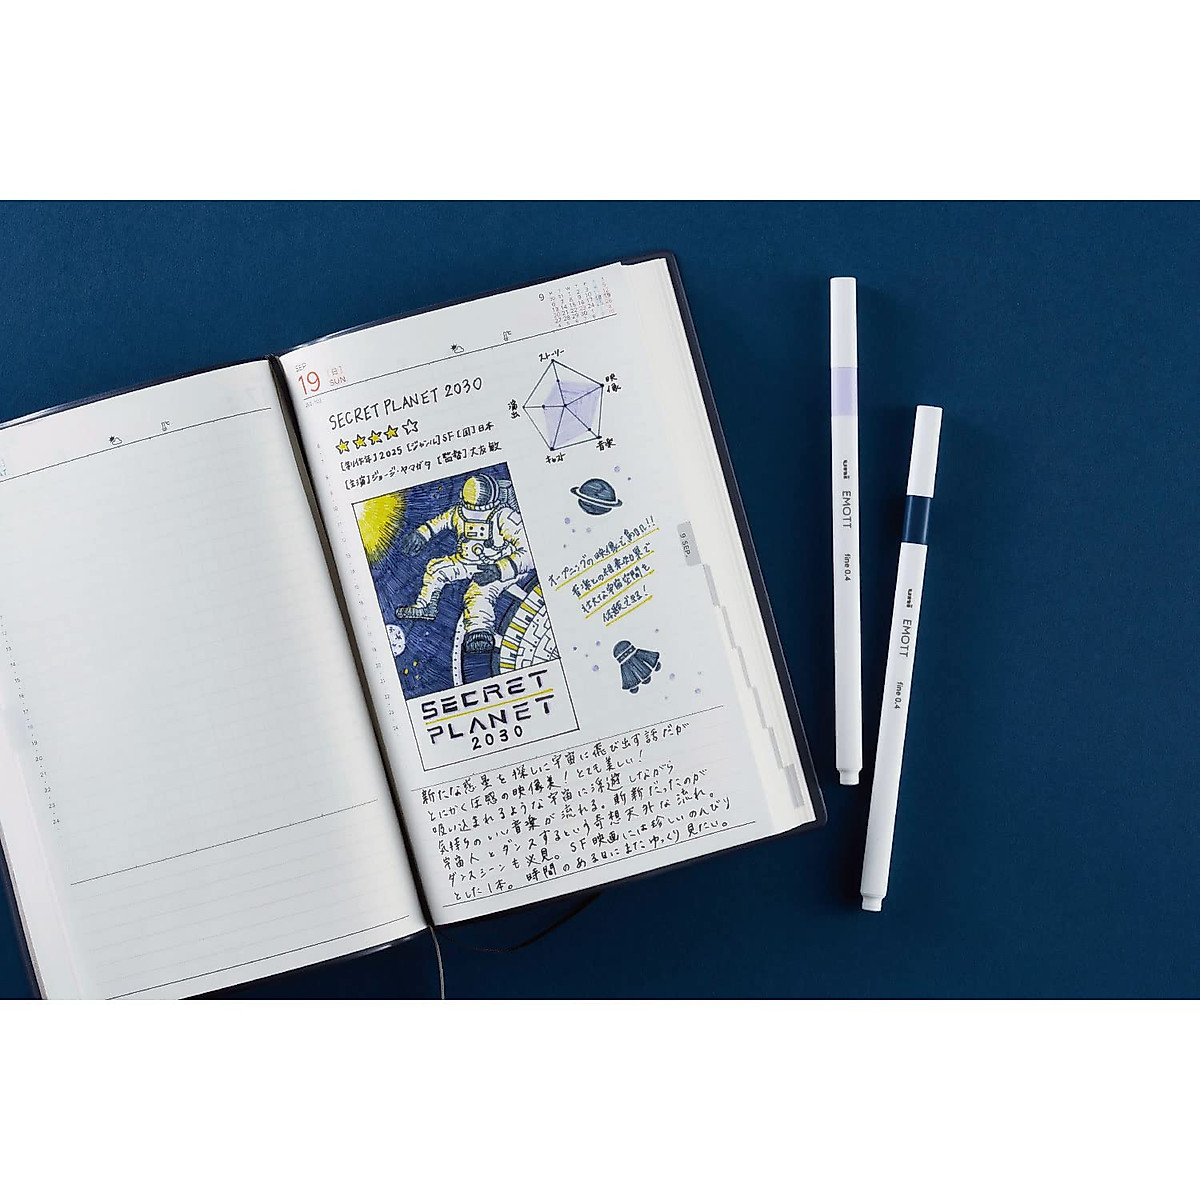 9
SEP
19
[日]
SUN.
SECRET PLANET 2030
[制作年] 2025 [ジャンル] SF [国] 日本
[主演] ジョージ・ヤマガタ [監督] 大友敏
ストーリー
映像
音楽
キャスト
演出
オープニングの映像で鳥肌!!
音楽との相乗効果で
壮大な宇宙空間を
体験できる!
SECRET
PLANET
2030
新たな惑星を探しに宇宙に飛び出す話だが
とにかく圧巻の映像美!とても美しい!
吸い込まれるような宇宙に浮遊しながら
気持ちのいい音楽が流れる。斬新だったのが
宇宙人とダンスするという奇想天外な流れ。
ダンスシーンも必見。SF映画には珍しいのんびり
とした1本。時間のある日にまたゆっくり見たい。
9 SEP.
uni EMOTT fine 0.4
uni EMOTT fine 0.4